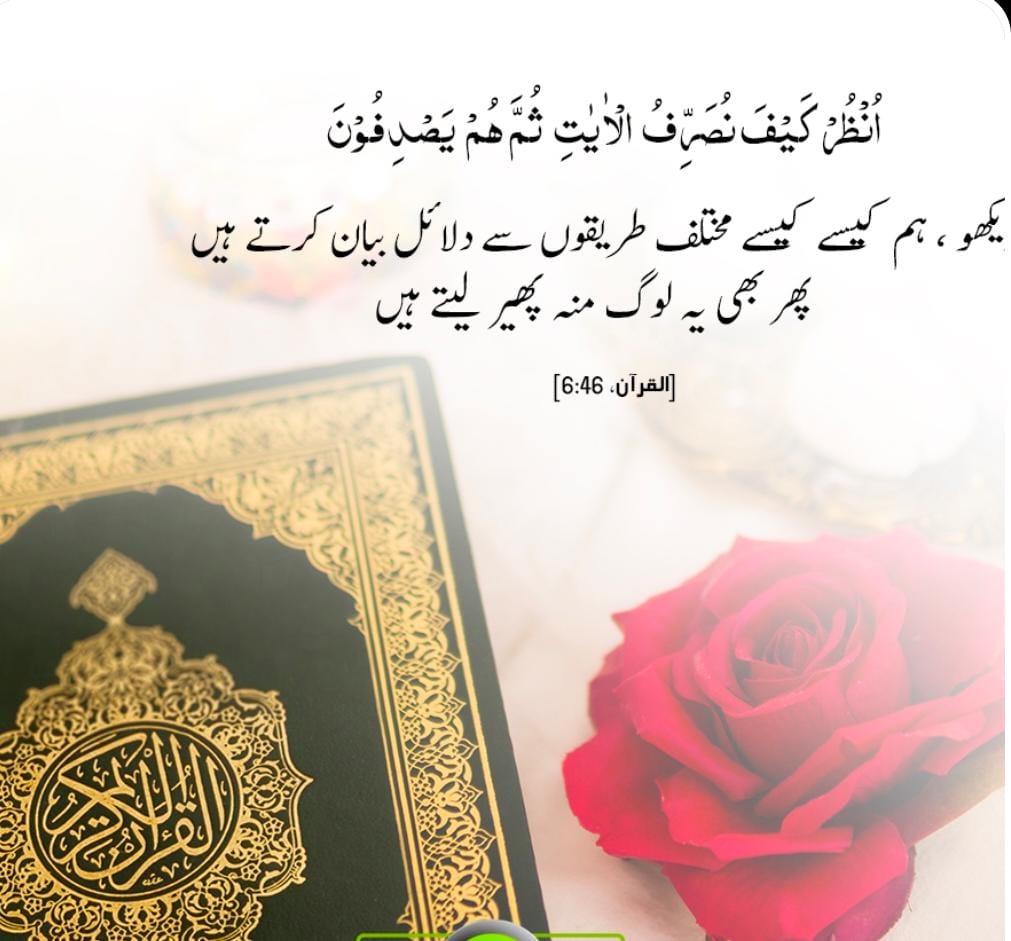 اُنْظُرْ كَيْفَ نُصَرِّفُ الْاٰيٰتِ ثُمَّ هُمْ يَصْدِفُوْنَ
یکھو ، ہم کیسے کیسے مختلف طریقوں سے دلائل بیان کرتے ہیں
پھر بھی یہ لوگ منہ پھیر لیتے ہیں
[القرآن، 6:46]
القرآن الكريم